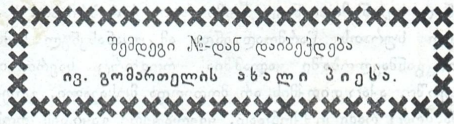 შემდეგი №-დან დაიბეჭდება
ივ. გომართელის ახალი პიესა.